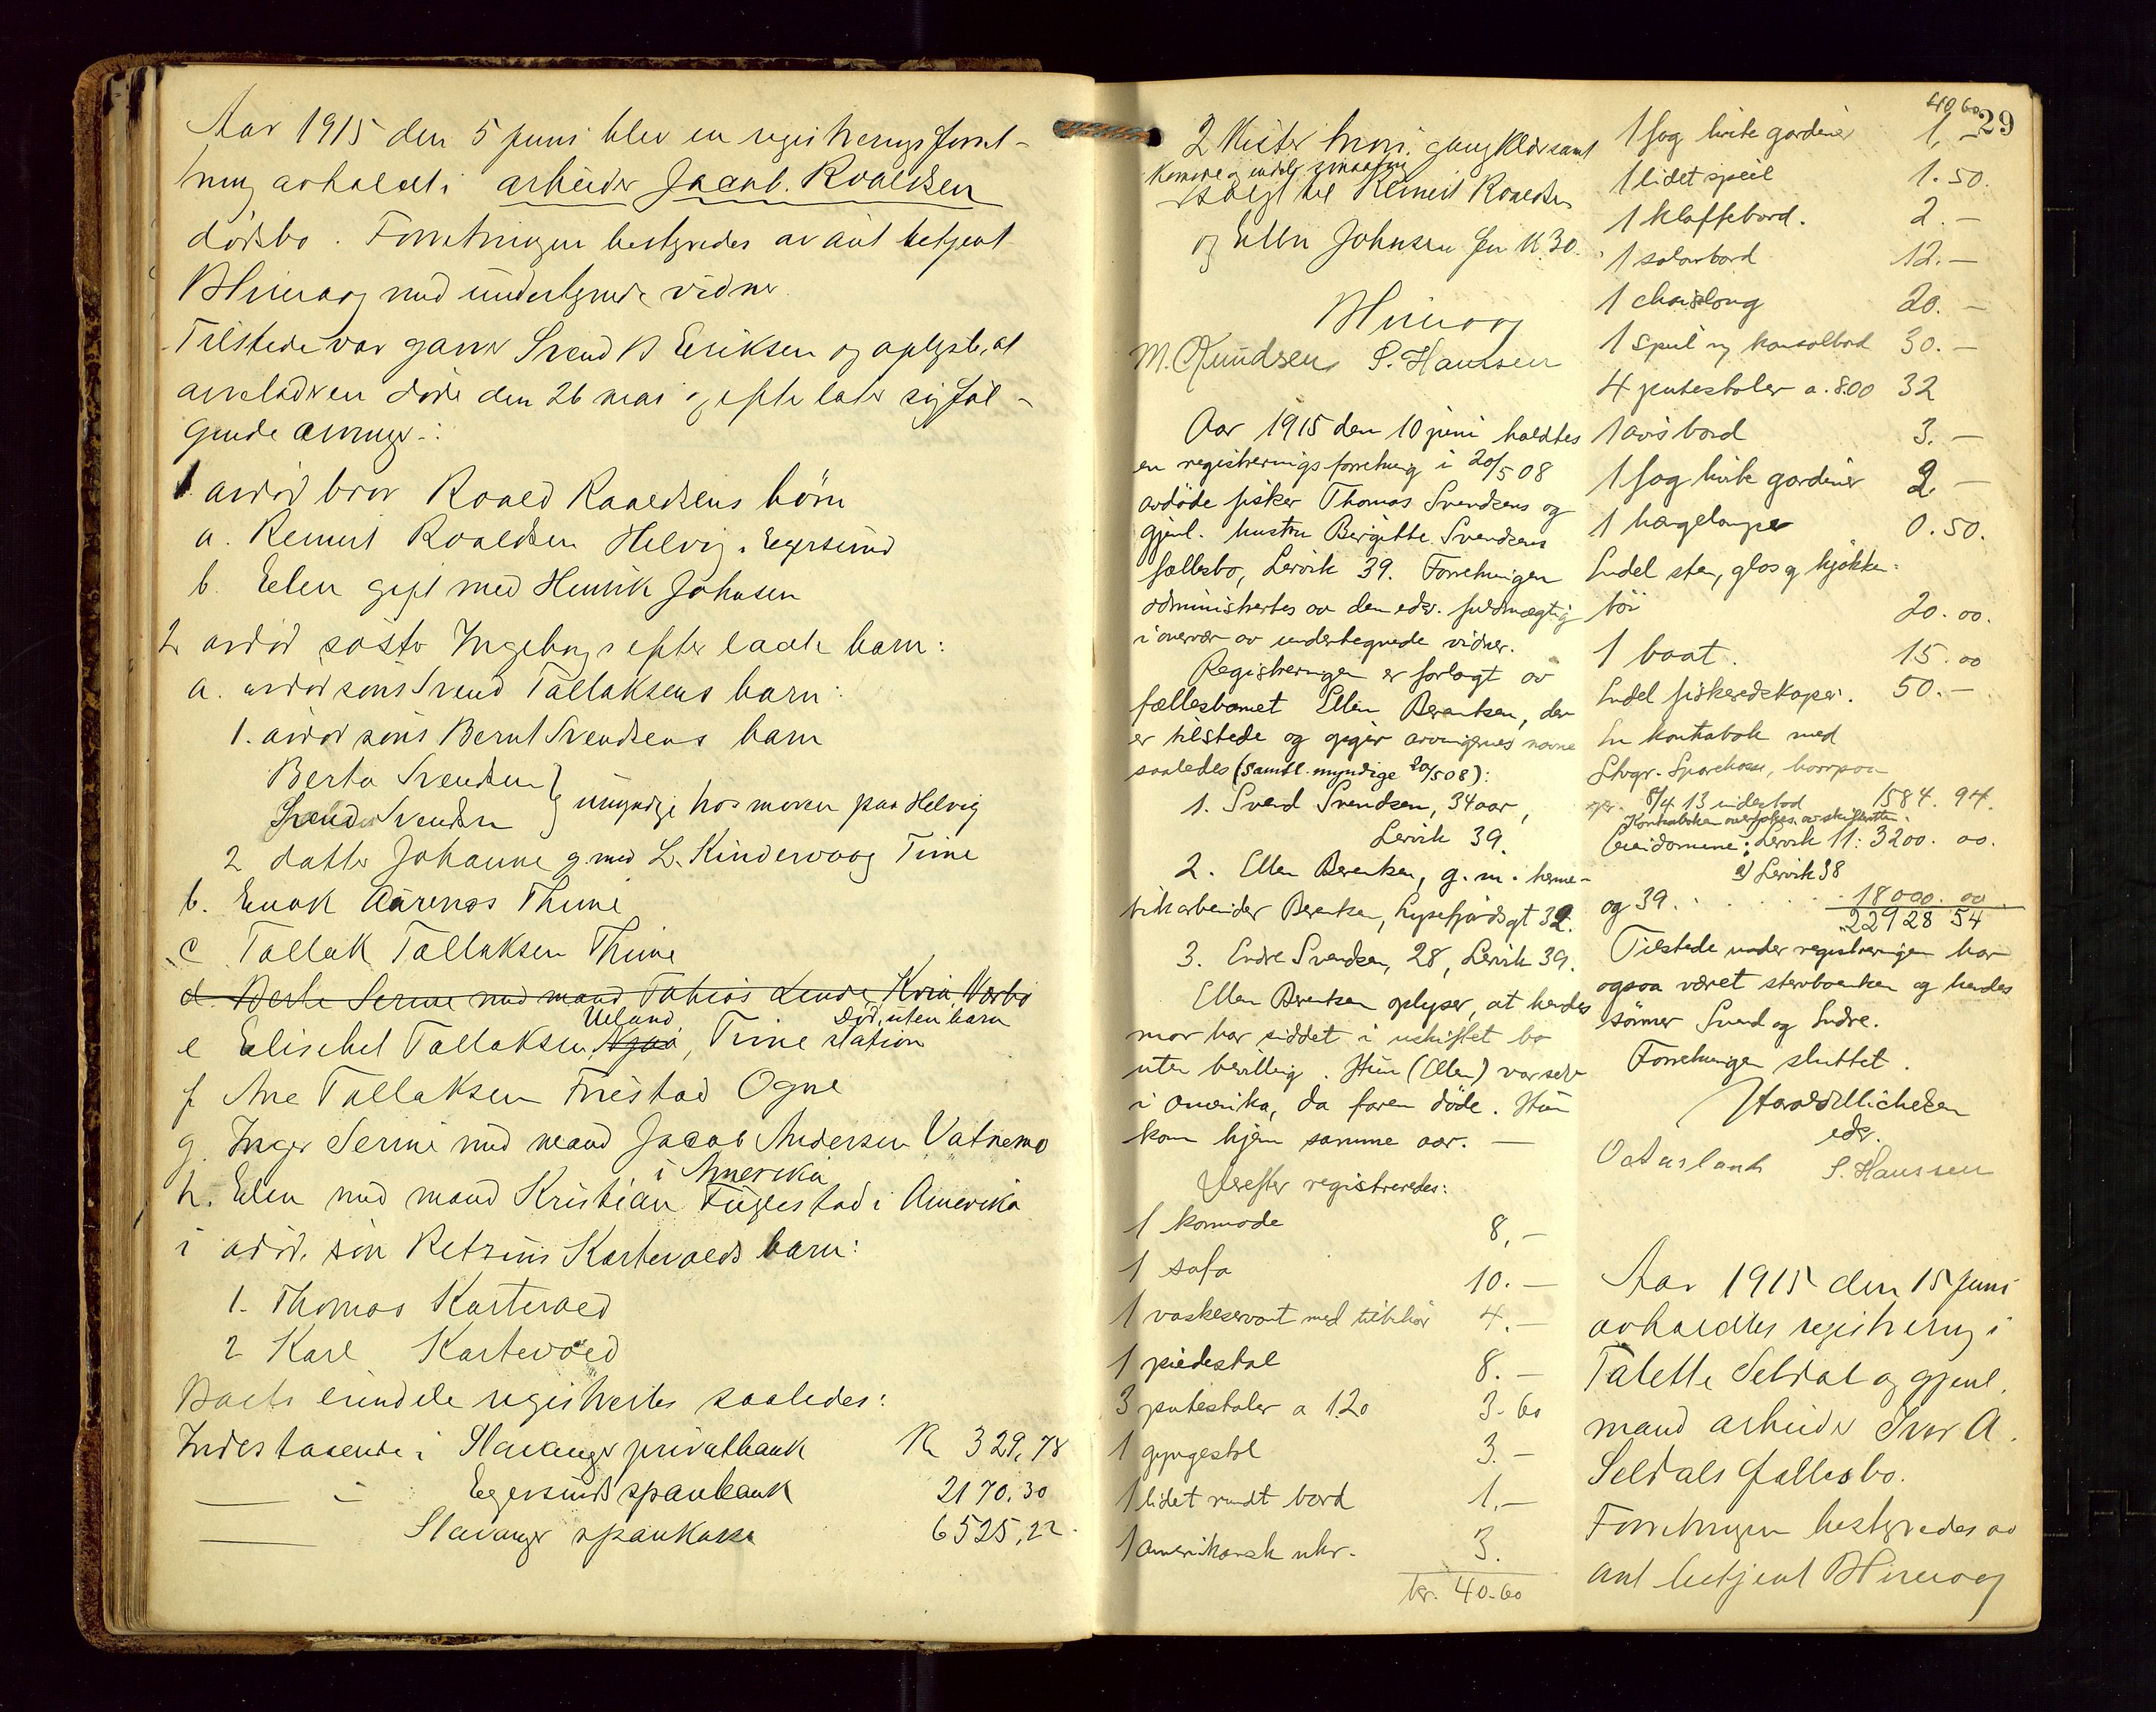 Aar 1915 den 5 juni blev en registreringsforret-
ning avholdt i arbeider Jacob Roaldsen
dødsbo. Forretningen bestyredes av aut betjent
med undertegnede vidner
Tilstede var garver Svend B Eriksen og oplyste, at
avdøde døde den 26 mai og efterlater sig føl-
gende arvinger:
1 avdød bror Roald Roaldsens børn
a. Reinert Roaldsen Helvig, Egersund
b. Elen gift med Henrik Johnsen
2 avdød søster Ingeborgs efterladte barn:
a. avdød søns Svend Tallaksens barn:
1. avdød søns Bernt Svendsens barn
Berta Svendsen
Svend Svendsen } umyndige hos moren paa Helvig
2 datter Johanne g. med L. Kindervaag Time
b. Enok Aarenes Thime
c Tallak Tallaksen Thime
d Berte Serine med mand Tobias Lende, Kvia, Nærbø
Ueland Død, uten barn
e Elisebet Tallaksen, Njaa, Time station
f Ane Tallaksen Friestad Ogne
g. Inger Serine med mand Jacob Andersen Vatnemo
i Amerika
h. Elen med mand Kristian Fuglestad i Amerika
i avdød søn Petrus Kartevolds barn:
1. Thomas Kartevold
2 Karl Kartevold
Boets eiendele registrertes saaledes:
Indestaaende i Stavanger privatbank Kr 329,78
— - Egersunds sparebank 2170.30
— Stavanger sparekasse 6525,22
2 Kister hvori gangklær samt
Komode og endel smaating
solgt til Reinert Roaldsen
og Ellen Johnsen for Kr 30.
M. Knudsen S. Hanssen
Aar 1915 den 10 juni holdtes
en registreringsforretning i 20/5 08
avdøde fisker Thomas Svendsens og
gjenl. hustru Birgitte Svendsens
fællesbo, Lervik 39. Forretningen
administrertes av den eds. fuldmægtig
i overvær av undertegnede vidner.
Registreringen er forlagt av
fællesbarnet Ellen Berentsen, der
er tilstede og opgir arvingernes navne
saaledes (samtl. myndige 20/5 08):
1. Svend Svendsen, 34 aar,
Lervik 39.
2. Ellen Berentsen, g. m. herme-
tikarbeider Berentsen, Lysefjordsgt 32.
3. Endre Svendsen, 28, Lervik 39.
Ellen Berentsen oplyser, at hendes
mor har siddet i uskiftet bo
uten bevilling. Hun (Ellen) var selv
i Amerika, da faren døde. Hun
kom hjem samme aar. —
Derefter registreredes:
1 kommode 8,-
1 sofa 10.-
1 vaskeservant med tilbehør 4.-
1 piedestal 8.-
3 putestoler a 1.20 3.60
1 gyngestol 3.-
1 lidet rundt bord 1.-
1 amerikansk uhr. 3.
kr. 40.60
40,60 29
1 fag hvite gardiner 1,-
1 lidet speil 1.50.
1 klaffebord. 2.-
1 salonbord 12.-
1 chaiselong 20.-
1 speil og konsolbord 30.-
4 putestoler a. 8.00 32
1 avisbord 3.-
1 fag hvite gardiner 2.-
1 hængelampe 0.50.
Endel sten, glas og kjøkken-
tøi 20.00.
1 baat. 15.00
Endel fiskeredskaper. 50.-
En kontrabok med
Stvgr. Sparekasse, hvorpaa
8/4 13 indestod 1584.94.
Kontraboken av skifteretten.
Eiendomene: Lervik 11: 3200.00.
2) Lervik 38
og 39. . . . . 18000.00
22928 54
Tilstede under registreringen har
ogsaa været sterboenken og hendes
sønner Svend og Endre.
Forretningen sluttet.
Harald Michelsen
eds.
O Aasland S. Hanssen
Aar 1915 den 15 juni
avholdtes registrering i
Talette Seldal og gjenl.
mand arbeider Ivar A.
Seldals fællesbo.
Forretningen bestyredes av
aut betjent